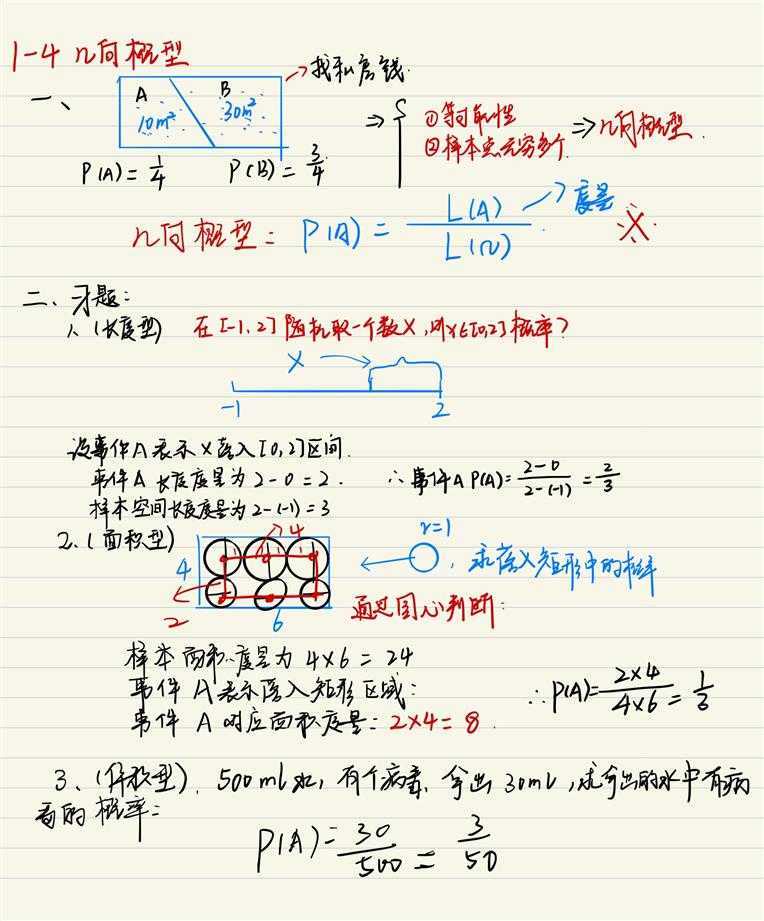 1-4 几何概型
一、
A B → 找私房钱
10m² 30m²
P(A) = 1/4 P(B) = 3/4
⇒ { ①等可能性
②样本点无穷多个 ⇒ 几何概型.
几何概型: P(A) = L(A)/L(Ω) → 度量 ※
二、习题:
1、(长度型) 在[-1,2]随机取一个数X,则X∈[0,2]概率?
X
-1 2
设事件A表示X落入[0,2]区间.
事件A长度度量为2-0=2. ∴事件A P(A)= (2-0)/(2-(-1)) = 2/3
样本空间长度度量为2-(-1)=3
2、(面积型) 4 r=1
4 1 1 ,求落入矩形中的概率
2 6 通过圆心判断:
样本面积度量为 4×6=24
事件A表示落入矩形区域:
事件A对应面积度量:2×4=8. ∴P(A)= (2×4)/(4×6) = 1/3
3、(体积型). 500ml水,有个病毒,拿出30ml,求拿出的水中有病
毒的概率:
P(A)= 30/500 = 3/50